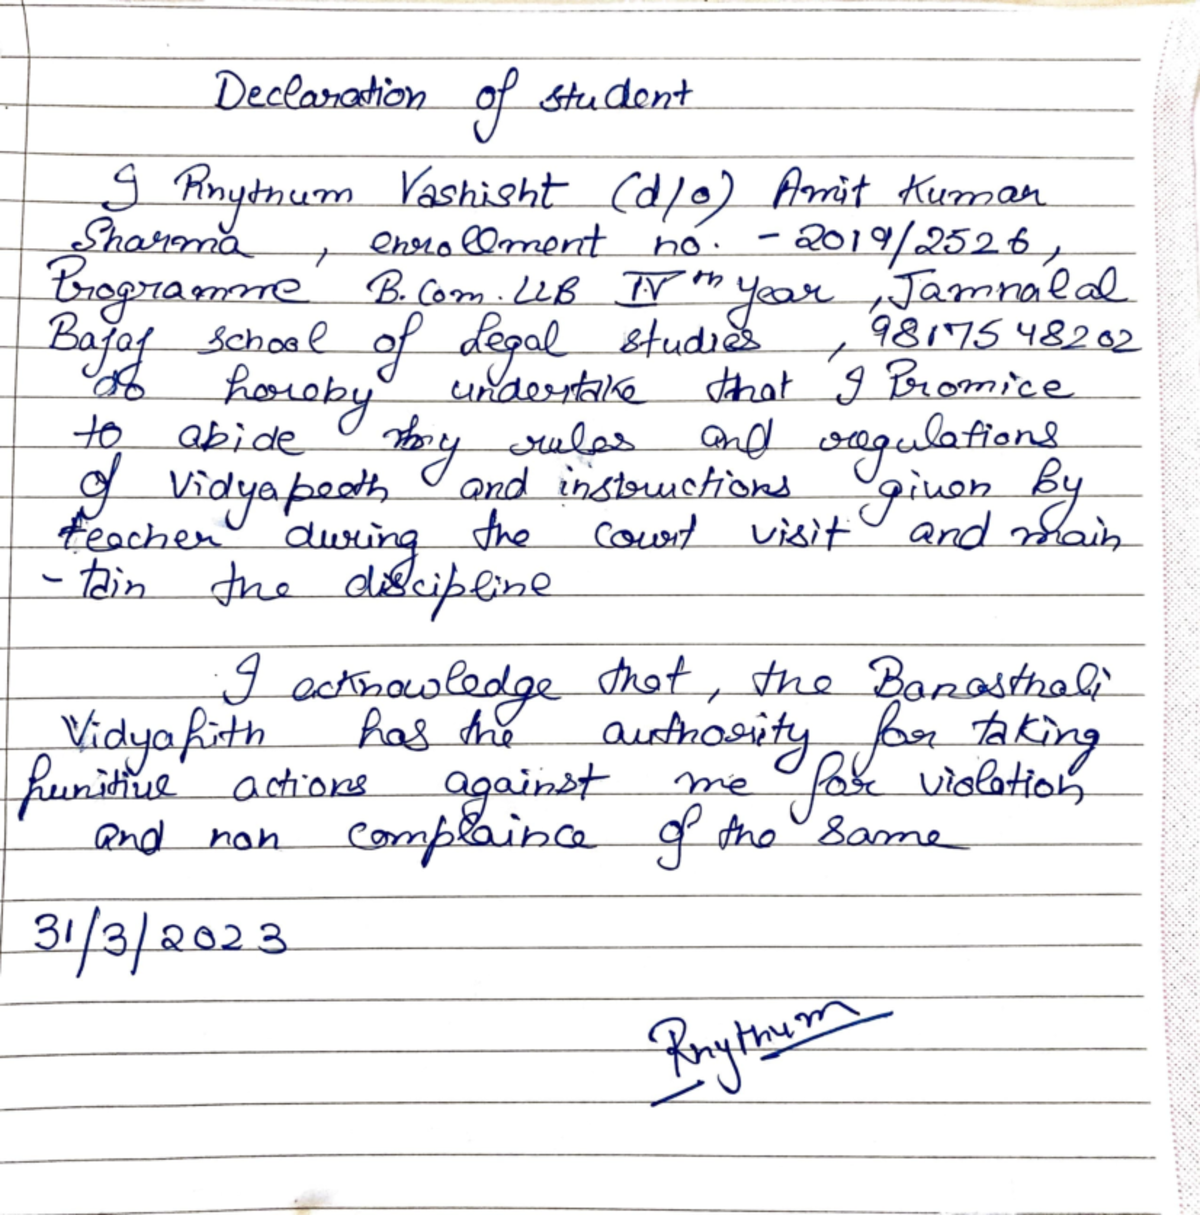 Declaration of student
I Rhythum Vashisht (d/o) Amit Kumar
Sharma , enrollment no. - 2019/2526,
Programme B.Com. LLB IVth year , Jamnalal
Bajaj school of Legal studies , 9817548202
do hereby undertake that I Promice
to abide by rules and regulations
of Vidyapeeth and instructions given By
teacher during the Court visit and main
- tain the discipline
I acknowledge that, the Banasthali
Vidyapith has the authority for taking
punitive actions against me for violation
and non complaince of the same
31/3/2023
Rhythum